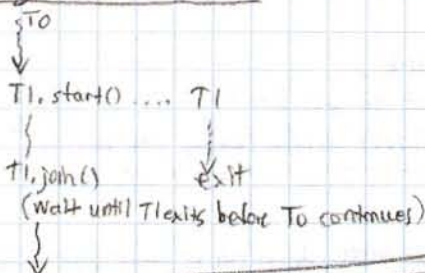 T0
T1.start() .... T1
T1.join() exit
(wait until T1 exits before T0 continues)